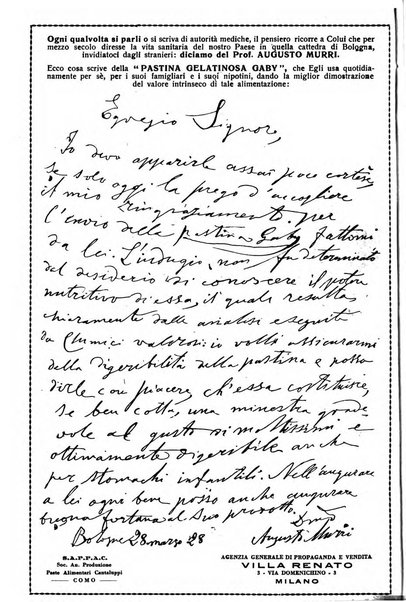 Ogni qualvolta si parli o si scriva di autorità mediche, il pensiero ricorre a Colui che per
mezzo secolo diresse la vita sanitaria del nostro Paese in quella cattedra di Bologna,
invidiatoci dagli stranieri: diciamo del Prof. AUGUSTO MURRI.
Ecco cosa scrive della "PASTINA GELATINOSA GABY", che Egli usa quotidia-
namente per sè, per i suoi famigliari e i suoi nipotini, dando la miglior dimostrazione
del valore intrinseco di tale alimentazione:
Egregio Signore,
Io devo apparirle assai poco cortese,
se solo oggi la prego d'accogliere
il mio ringraziamento per
l'invio della pastina Gaby fattomi
da lei. L'indugio, non fu determinato
dal desiderio di conoscere il potere
nutritivo di essa, il quale resulta
chiaramente dalle analisi eseguite
da Chimici valorosi: io volli assicurarmi
della digeribilità della pastina e posso
dirle con piacere, ch'essa costituisce,
se ben cotta, una minestra grade
vole al gusto di moltissimi e
ottimamente digeribile anche
per stomachi infantili. Nell'augurare
a lei ogni bene posso anche augurare
buona fortuna al Suo prodotto.
Bologna 28 marzo 28
Augusto Murri
S.A.P.P.A.C.
Soc. An. Produzione
Paste Alimentari Cantaluppi
COMO
AGENZIA GENERALE DI PROPAGANDA E VENDITA
VILLA RENATO
3 - VIA DOMENICHINO - 3
MILANO